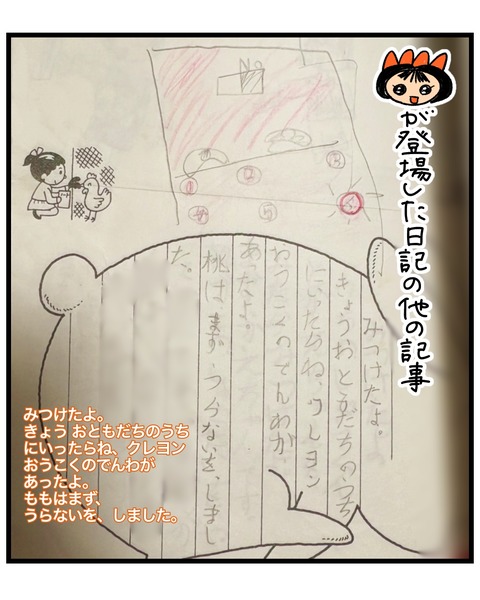 が登場した日記の他の記事
No
①
②
③
④
⑤
みつけたよ。
きょうおともだちのうち
にいったらね、クレヨン
おうこくのでんわが
あったよ。
桃はまずうらないを、しまし
た。
みつけたよ。
きょう おともだちのうち
にいったらね、クレヨン
おうこくのでんわが
あったよ。
ももはまず、
うらないを、しました。